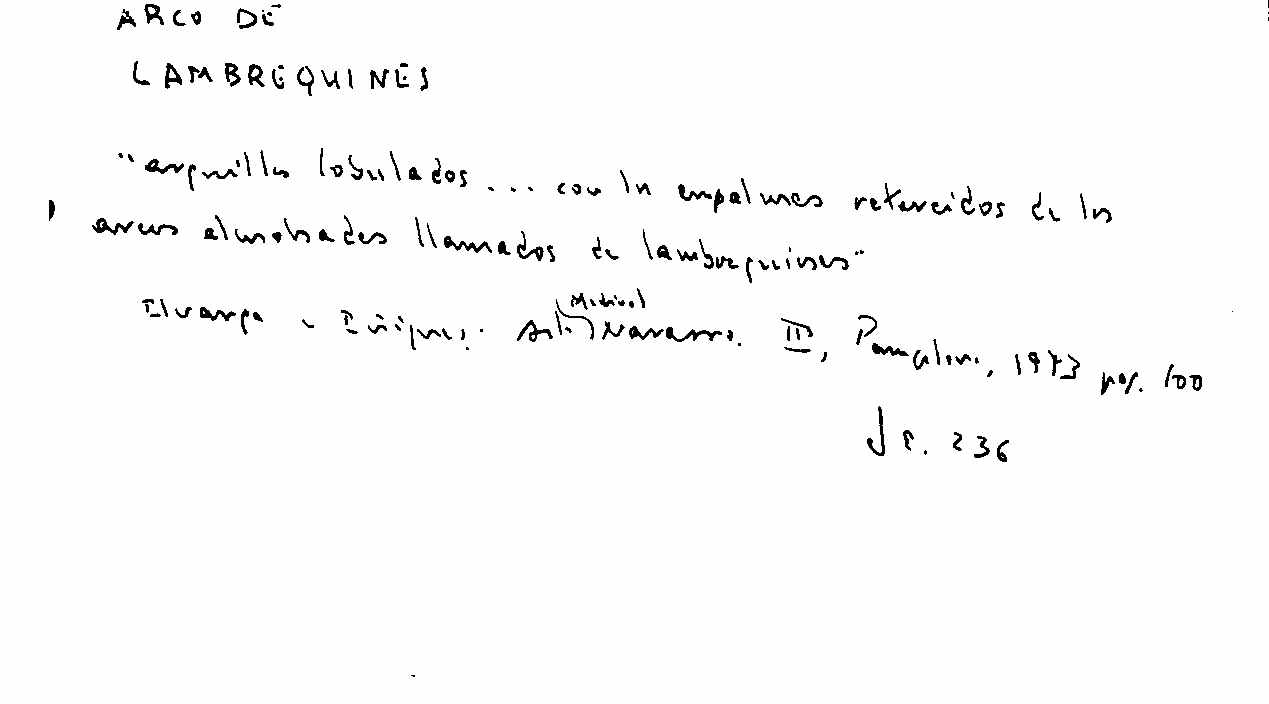 ARCO DE
LAMBREQUINES
"arquillos lobulados... con los empalmes retorcidos de los
arcos almohades llamados de lambrequines"
Medieval
Uranga e Iñiguez. Arte Navarro. II, Pamplona, 1973 pág. 100
236